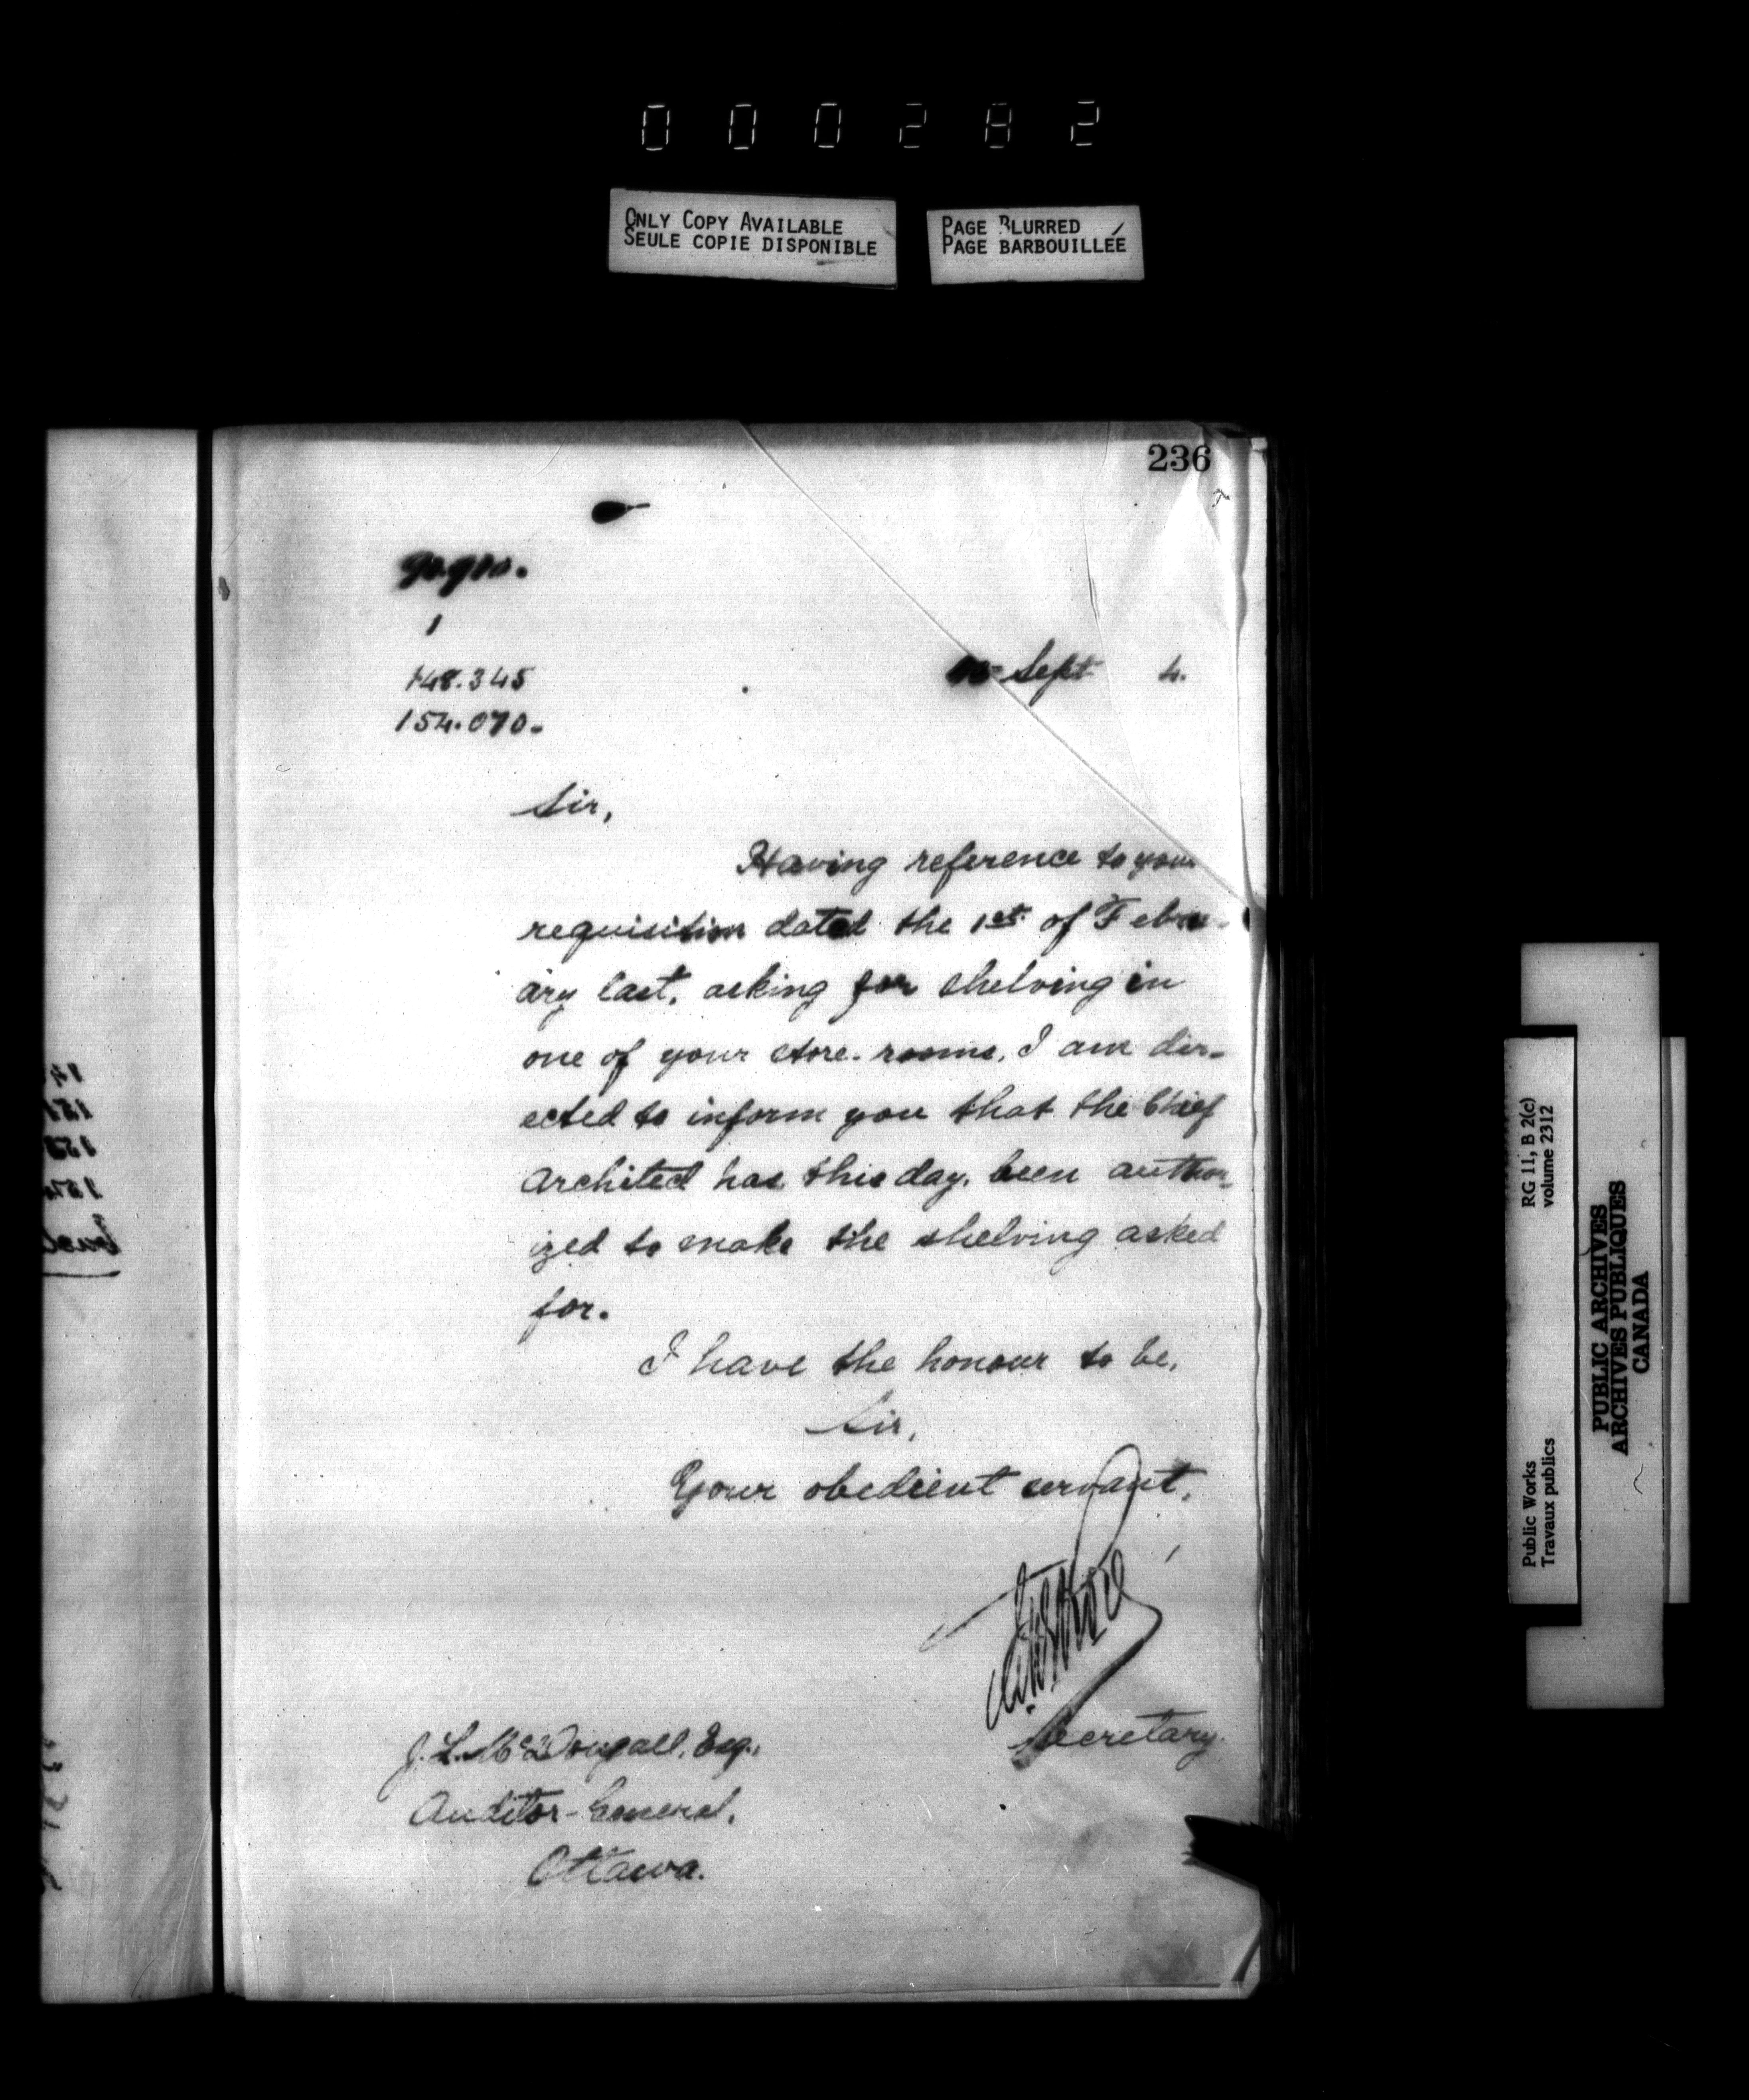 000282
ONLY COPY AVAILABLE
SEULE COPIE DISPONIBLE
PAGE BLURRED
PAGE BARBOUILLÉE
236
1
148.345
154.070.
Sept 4.
Sir,
Having reference to your
requisition dated the 1st of Febru-
ary last, asking for shelving in
one of your store-rooms, I am dir-
ected to inform you that the Chief
Architect has this day been author-
ized to make the shelving asked
for.
I have the honour to be,
Sir,
Your obedient servant,
Secretary.
J. L. McDougall, Esq.,
Auditor-General,
Ottawa.
Public Works
Travaux publics
RG 11, B 2(c)
volume 2312
PUBLIC ARCHIVES
ARCHIVES PUBLIQUES
CANADA